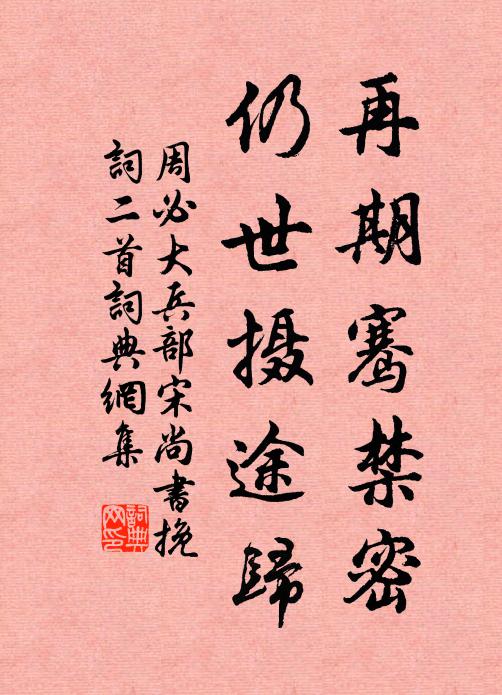 再期骞禁密
仍世摄途歸
周必大兵部宋尚書挽
詞二首詞典網集
詞典網印